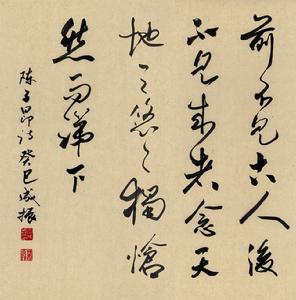 前不见古人後
不见来者念天
地之悠悠獨愴
然而涕下
陈子昂诗癸巳振